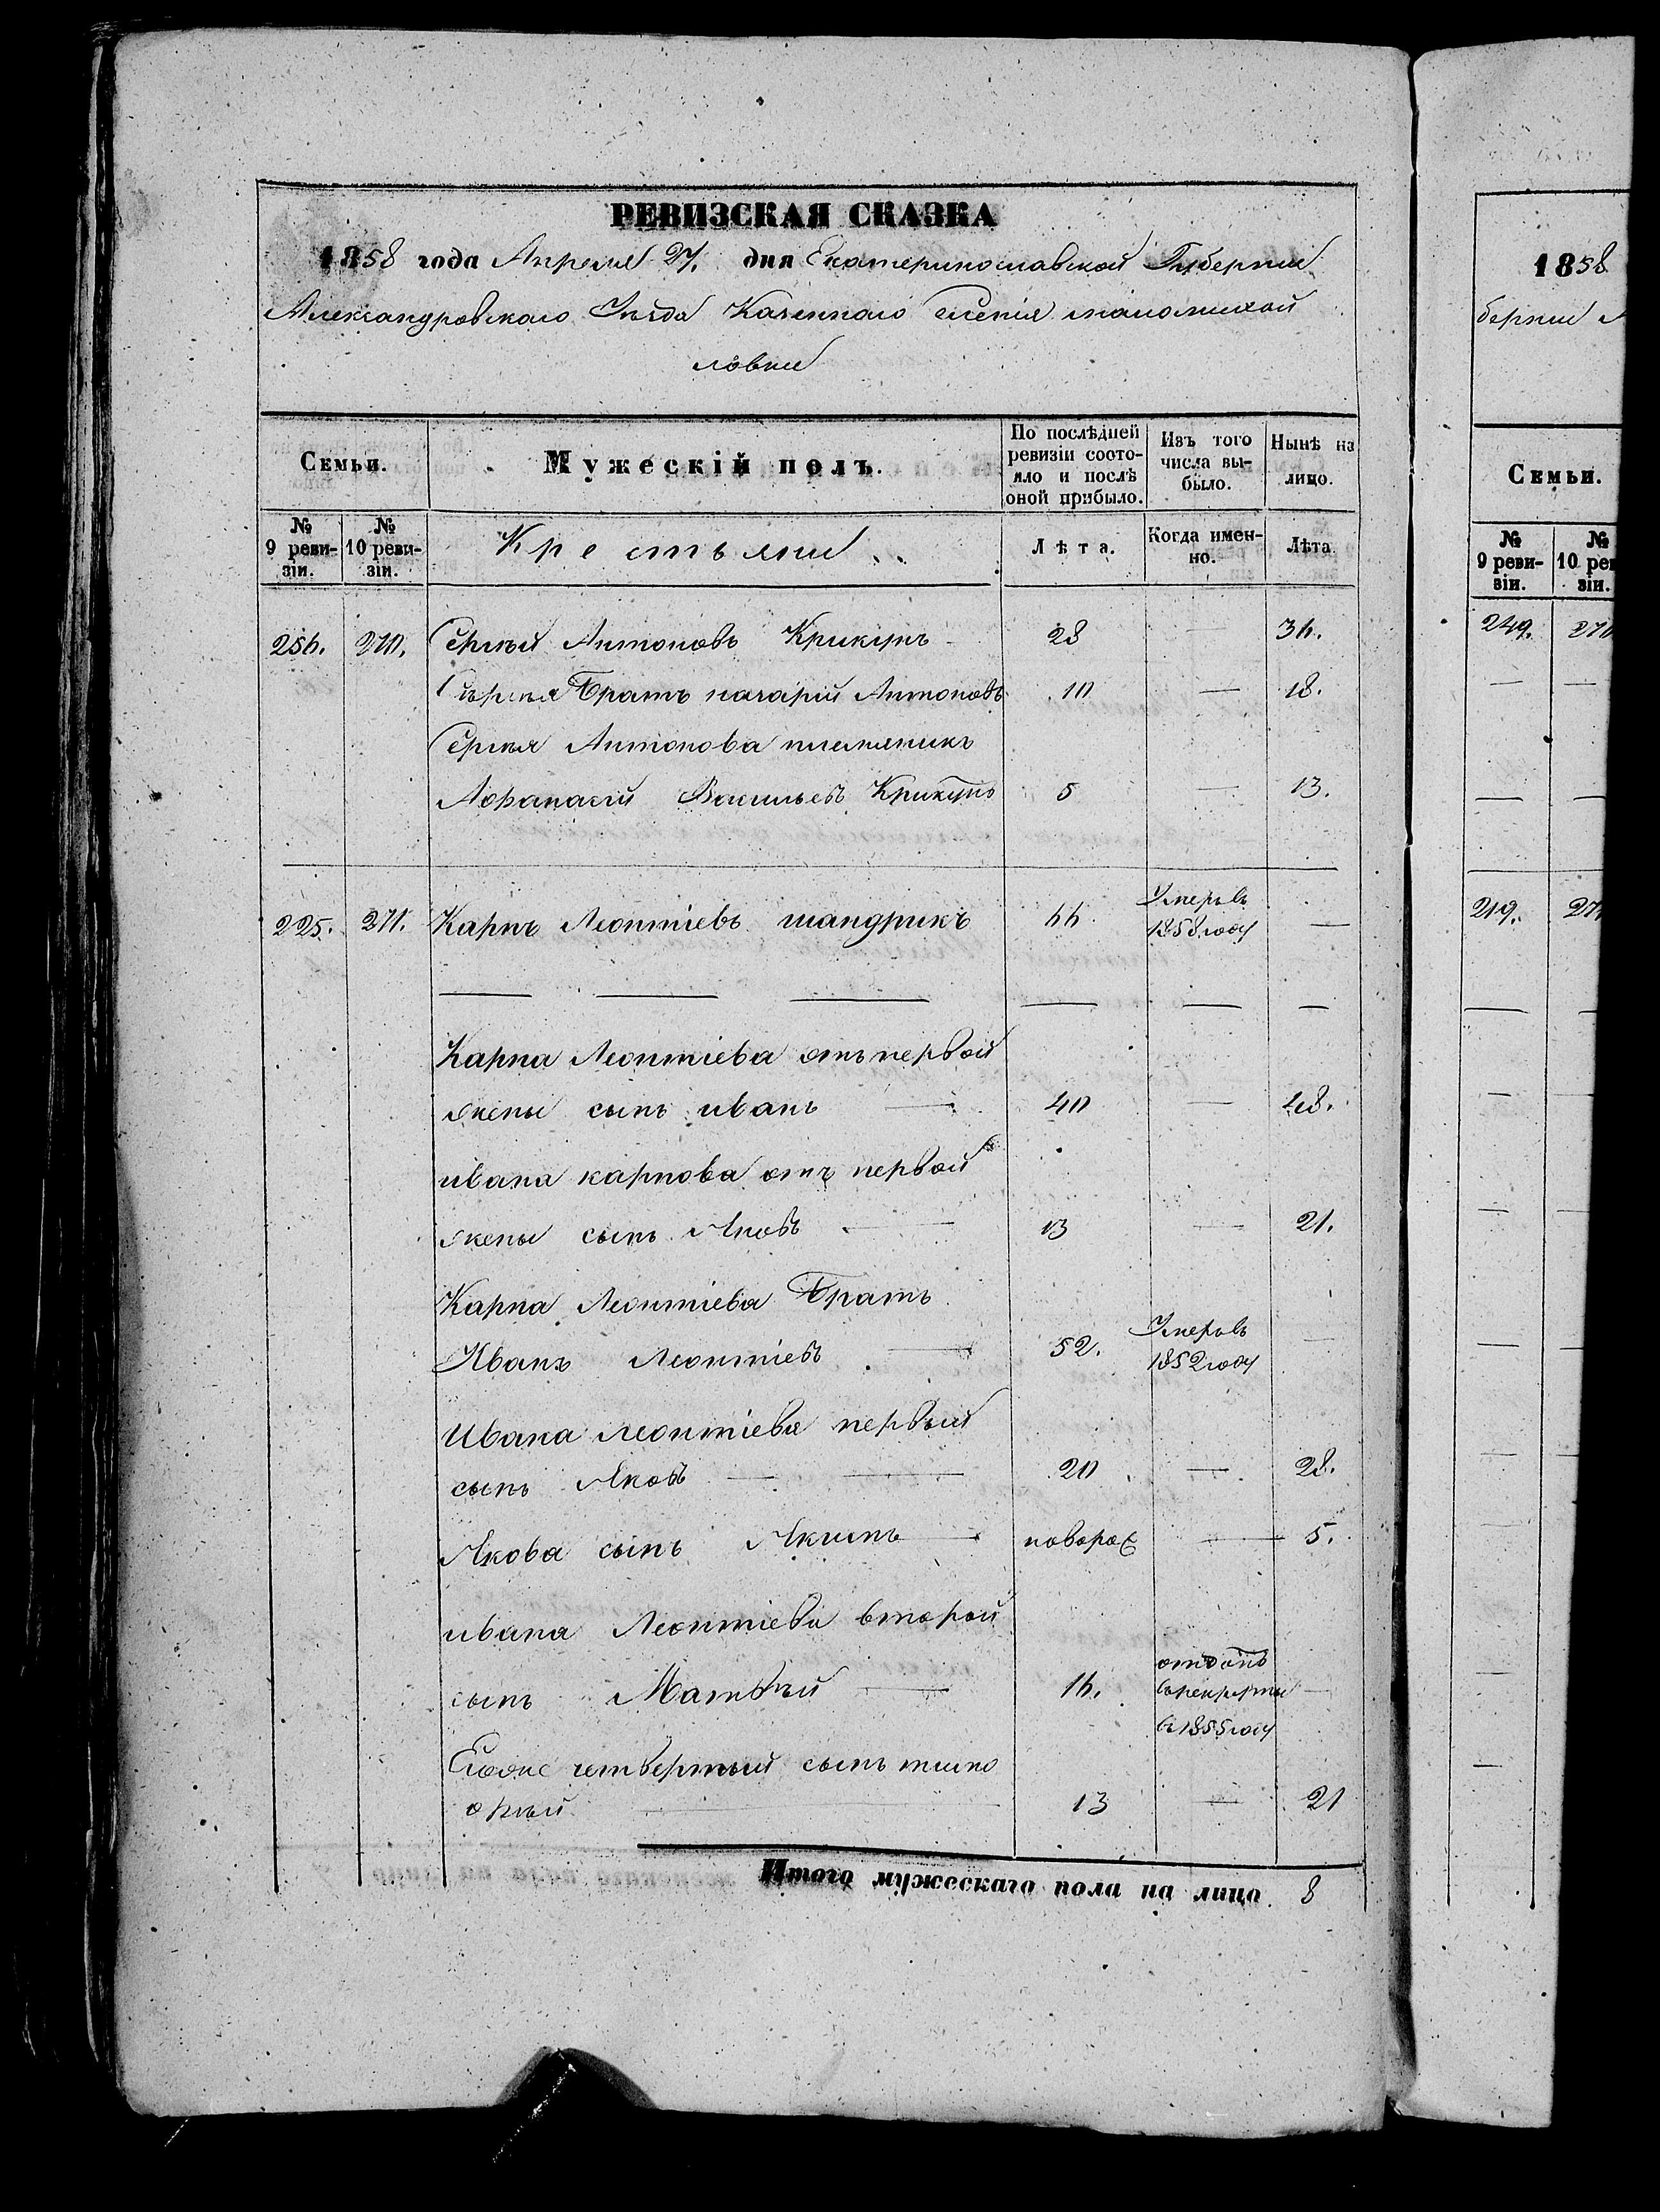 РЕВИЗСКАЯ СКАЗКА
1858 года Апреля 27. дня Екатеринославской Губернии
Александровскаго Уезда Казеннаго селенія маломихай
ловки
Семьи.
Мужескій полъ.
По послѣдней ревизіи состояло и послѣ оной прибыло.
Изъ того числа выбыло.
Нынѣ на лицо.
№ 9 ревизіи.
№ 10 ревизіи.
Крестьяни
Лѣта.
Когда именно.
Лѣта
256. 270. Сергѣй Антоновъ Крикунъ 28 — 36.
Сѣргѣя Братъ назарій Антоновъ 10 — 18.
Сергѣя Антонова племяникъ
Афанасій Васильевъ Крикунъ 5 — 13.
225. 271. Карпъ Леонтіевъ шандрикъ 66 Умеръ въ 1858 году —
Карпа Леонтіева отъ первой
жены сынъ иванъ — 40 — 48.
ивана карпова отъ первой
жены сынъ Яковъ — 13 — 21.
Карпа Леонтіева Братъ
Иванъ Леонтіевъ — 52. Умеръ въ 1852 году —
Ивана леонтіева первый
сынъ Яковъ — 20 — 28.
Якова сынъ Якимъ — новорож — 5.
ивана Леонтіева второй
сынъ Матвѣй — 16. отданъ въ рекруты в 1855 году —
Егоже четвертый сынъ тимо
фѣй — 13 — 21
Итого мужескаго пола на лицо 8
1858
бернии А
Семьи.
№ 9 ревизіи.
№ 10 рев
зіи.
249. 270
219. 27